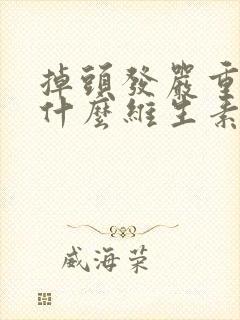 掉頭發嚴重
什麼維生素
威海荣